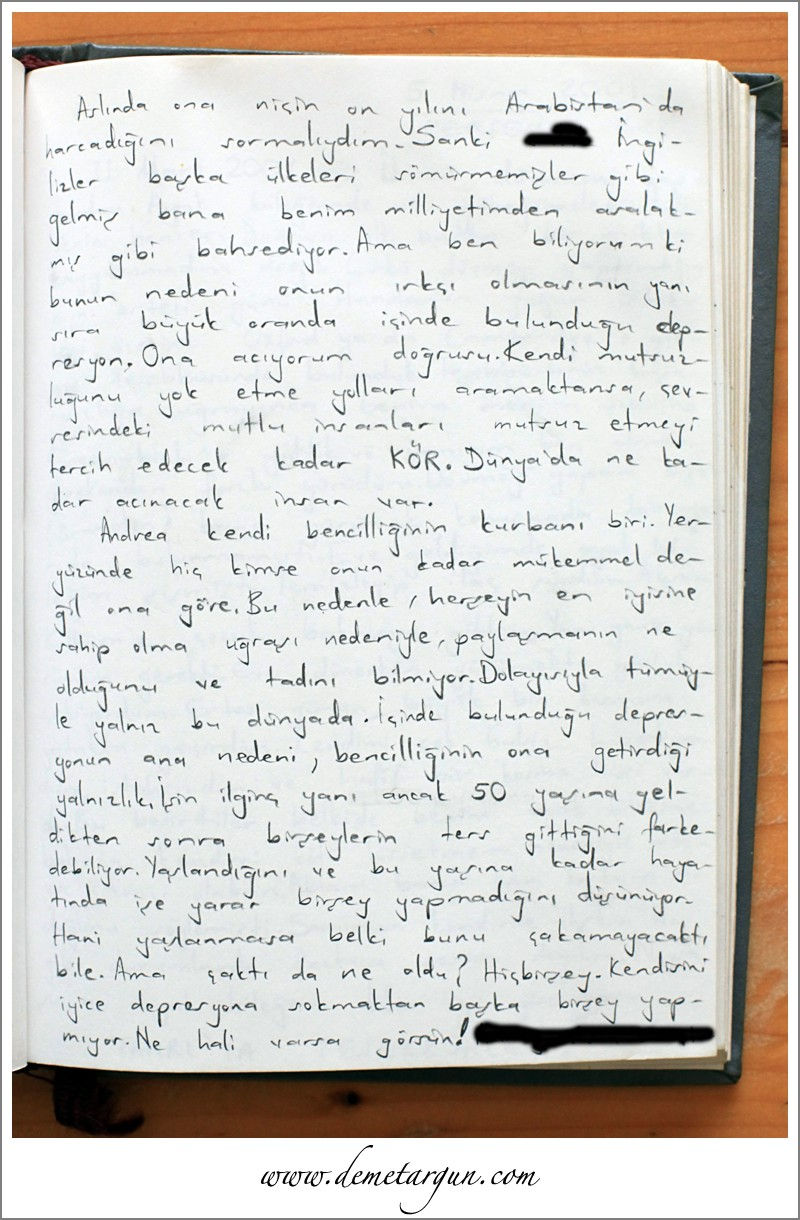 Aslında ona niçin on yılını Arabistan'da
harcadığını sormalıydım. Sanki İngi-
lizler başka ülkeleri sömürmemişler gibi
gelmiş bana benim milliyetimden asalak-
mış gibi bahsediyor. Ama ben biliyorum ki
bunun nedeni onun ırkçı olmasının yanı
sıra büyük oranda içinde bulunduğu dep-
resyon. Ona acıyorum doğrusu. Kendi mutsuz-
luğunu yok etme yolları aramaktansa, çev-
resindeki mutlu insanları mutsuz etmeyi
tercih edecek kadar KÖR. Dünya'da ne ka-
dar acınacak insan var.
Andrea kendi bencilliğinin kurbanı biri. Yer-
yüzünde hiç kimse onun kadar mükemmel de-
ğil ona göre. Bu nedenle, herşeyin en iyisine
sahip olma uğraşı nedeniyle, paylaşmanın ne
olduğunu ve tadını bilmiyor. Dolayısıyla tümüy-
le yalnız bu dünyada. İçinde bulunduğu depres-
yonun ana nedeni, bencilliğinin ona getirdiği
yalnızlık. İşin ilginç yanı ancak 50 yaşına gel-
dikten sonra birşeylerin ters gittiğini farke-
debiliyor. Yaşlandığını ve bu yaşına kadar haya-
tında işe yarar birşey yapmadığını düşünüyor.
Hani yaşlanmasa belki bunu çakamayacaktı
bile. Ama çaktı da ne oldu? Hiçbirşey. Kendisini
iyice depresyona sokmaktan başka birşey yap-
mıyor. Ne hali varsa görsün!
www.demetargun.com